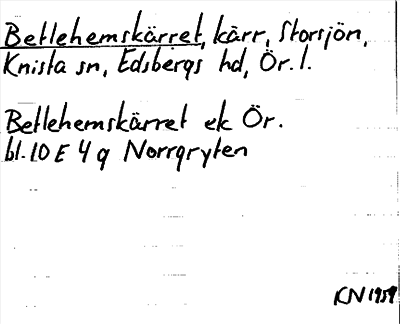 Betlehemskärret, kärr, Storsjön,
Knista sn, Edsbergs hd, Ör. l.
Betlehemskärret ek Ör.
bl. 10 E 4 g Norrgryten
KN 1959